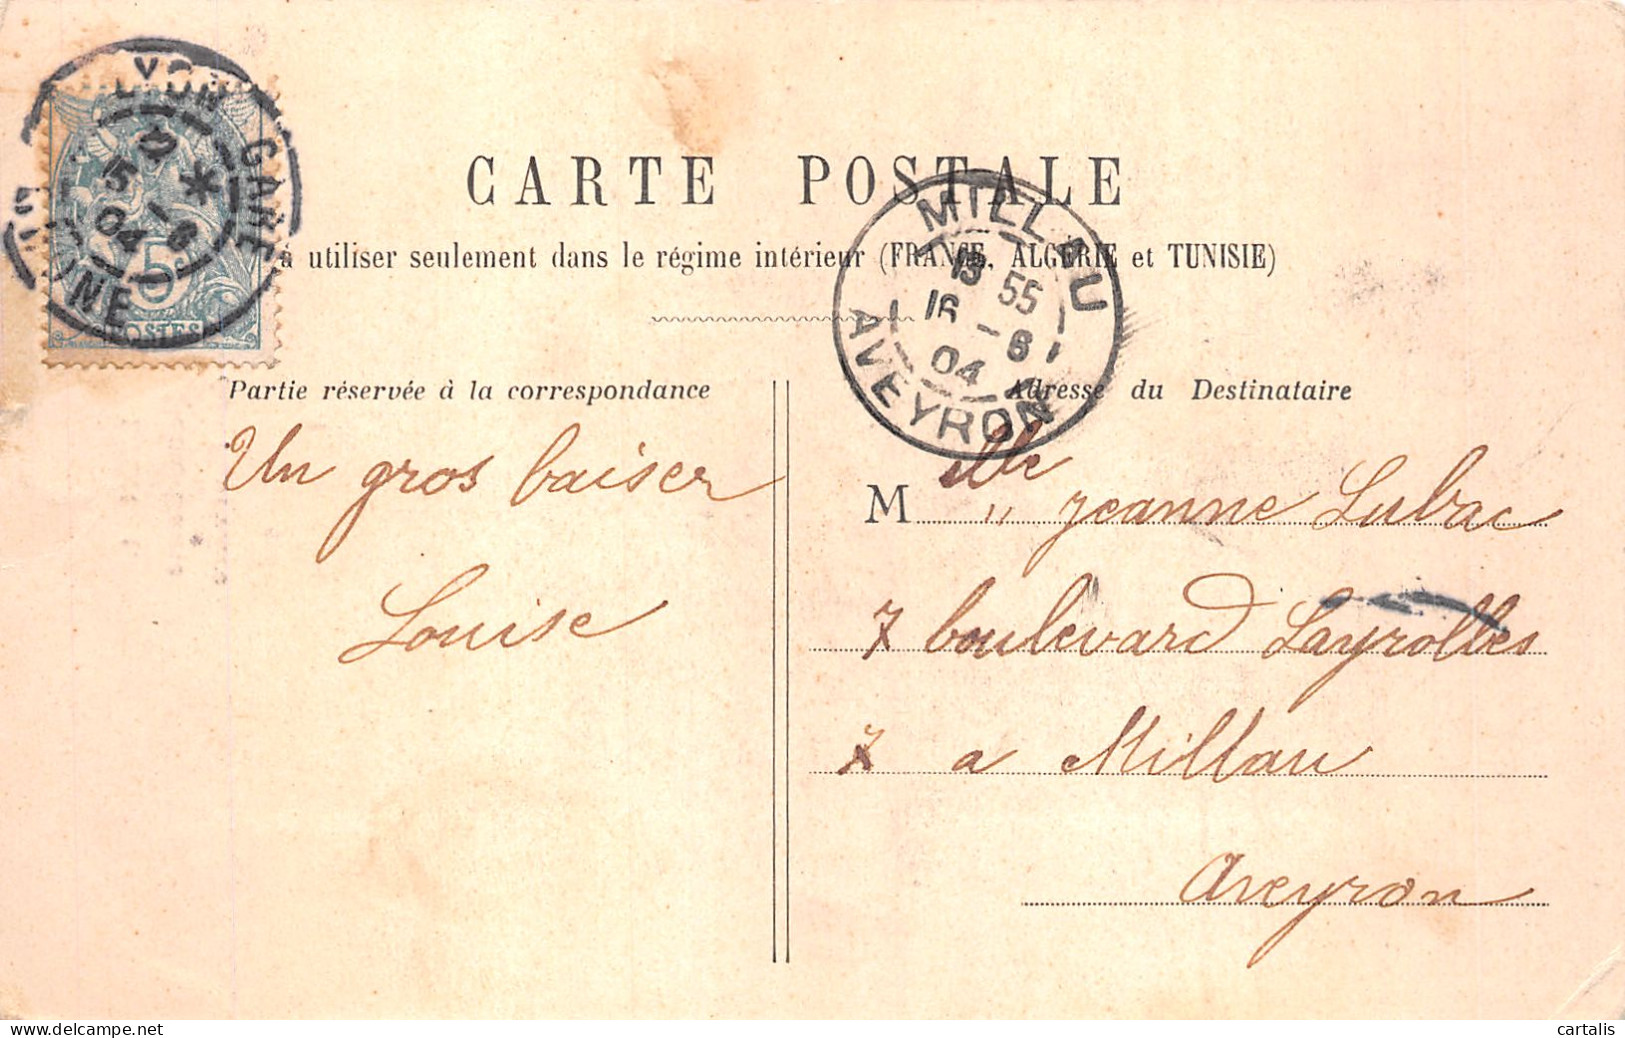 LYON GARE
15
6
04
5
POSTES
CARTE POSTALE
à utiliser seulement dans le régime intérieur (FRANCE, ALGÉRIE et TUNISIE)
MILLAU
13 55
16 - 6
04
AVEYRON
Partie réservée à la correspondance
Un gros baiser
Louise
Adresse du Destinataire
M elle " Jeanne Lubac
7 boulevard Layrolles
7 a Millau
Aveyron
cartalis